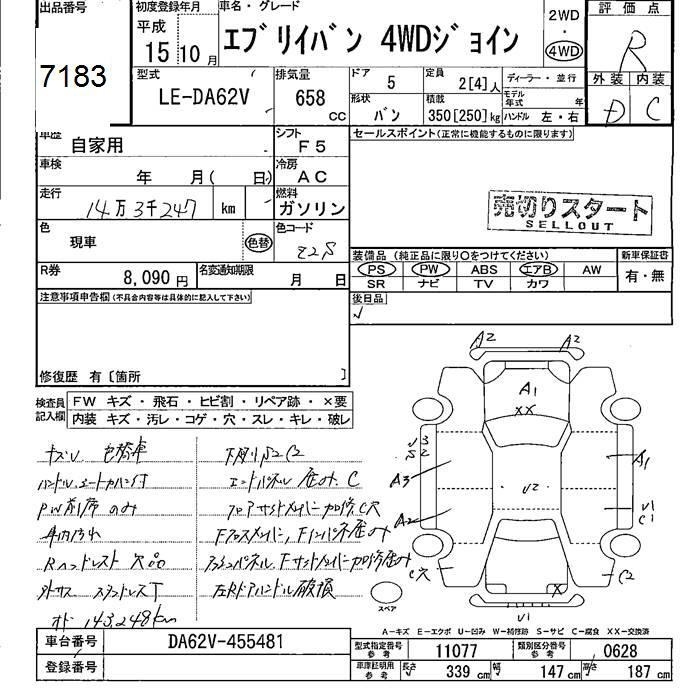 出品番号
7183
初度登録年月
平成 15 10 月
車名・グレード
エブリイバン 4WDジョイン
2WD
・
4WD
評価点
R
外装 内装
D C
型式
LE-DA62V
排気量
658 cc
ドア 5
定員 2[4]人
ディーラー・並行
形状 バン
積載 350[250]kg
モデル年式 年
ハンドル 左・右
車歴 自家用
シフト F5
セールスポイント(正常に機能するものに限ります)
車検 年 月( 日)
冷房 AC
走行 14万3千247 km
燃料 ガソリン
売切りスタート
SELLOUT
色 現車 色替
色コード Z2S
装備品 (純正品に限り○をつけてください)
新車保証書
PS PW ABS エアB AW
有・無
SR ナビ TV カワ
R券 8,090円
名変通知期限 月 日
後日品
注意事項申告欄(不具合内容等は具体的に記入して下さい)
修復歴 有〔箇所 〕
検査員記入欄
FW キズ・飛石・ヒビ割・リペア跡・×要
内装 キズ・汚レ・コゲ・穴・スレ・キレ・破レ
キズU 色替車
PW前席のみ
車内汚れ
欠品
オド 143248km
下廻りS2C2
エンドパネル 歪み、C
左RドアハンドルΒ破損
A2 A2
A1
XX
U3
S2
A3
A2
U2
A1
U1
C1
C穴
C2
X
U1
スペア
A-キズ E-エクボ U-凹み W-補修跡 S-サビ C-腐食 XX-交換済
車台番号 DA62V-455481
登録番号
型式指定番号 参考 11077
類別区分番号 参考 0628
車庫証明用 参考 長さ 339 cm 幅 147 cm 高さ 187 cm